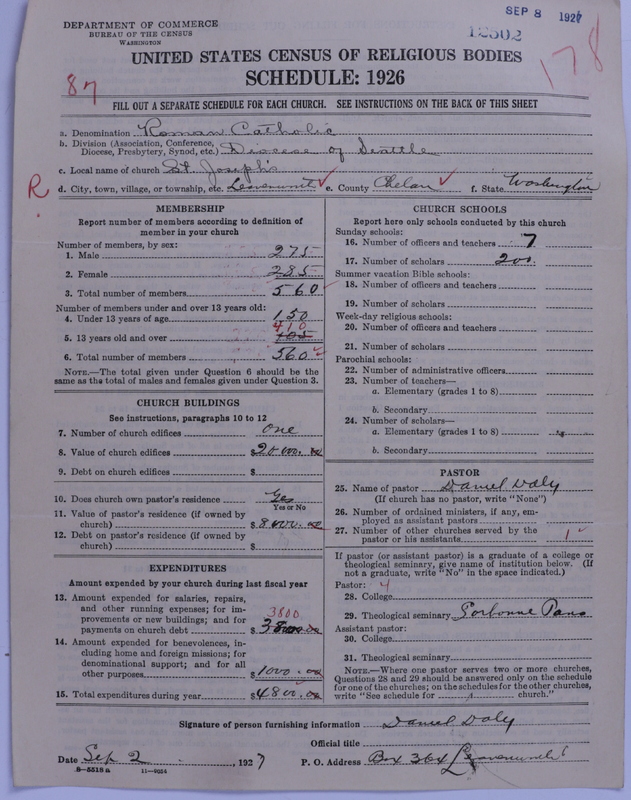 DEPARTMENT OF COMMERCE
BUREAU OF THE CENSUS
WASHINGTON
SEP 8 1927
12502
178
UNITED STATES CENSUS OF RELIGIOUS BODIES
SCHEDULE: 1926
87
FILL OUT A SEPARATE SCHEDULE FOR EACH CHURCH. SEE INSTRUCTIONS ON THE BACK OF THIS SHEET
a. Denomination Roman Catholic
b. Division (Association, Conference, Diocese, Presbytery, Synod, etc.) Diocese of Seattle
c. Local name of church St. Joseph's
R d. City, town, village, or township, etc. Leavenworth e. County Chelan f. State Washington
MEMBERSHIP
Report number of members according to definition of
member in your church
Number of members, by sex:
1. Male 275
2. Female 285
3. Total number of members 560
Number of members under and over 13 years old:
4. Under 13 years of age 150
410
5. 13 years old and over 105
6. Total number of members 560
NOTE.—The total given under Question 6 should be the
same as the total of males and females given under Question 3.
CHURCH BUILDINGS
See instructions, paragraphs 10 to 12
7. Number of church edifices One
8. Value of church edifices $
9. Debt on church edifices $
10. Does church own pastor's residence Yes
Yes or No
11. Value of pastor's residence (if owned by
church) $8000.00
12. Debt on pastor's residence (if owned by
church) $
EXPENDITURES
Amount expended by your church during last fiscal year
13. Amount expended for salaries, repairs,
and other running expenses; for im-
provements or new buildings; and for 3800
payments on church debt $
14. Amount expended for benevolences, in-
cluding home and foreign missions; for
denominational support; and for all
other purposes $1000.00
15. Total expenditures during year $4800.00
CHURCH SCHOOLS
Report here only schools conducted by this church
Sunday schools:
16. Number of officers and teachers 7
17. Number of scholars 200.
Summer vacation Bible schools:
18. Number of officers and teachers
19. Number of scholars
Week-day religious schools:
20. Number of officers and teachers
21. Number of scholars
Parochial schools:
22. Number of administrative officers
23. Number of teachers—
a. Elementary (grades 1 to 8)
b. Secondary
24. Number of scholars—
a. Elementary (grades 1 to 8)
b. Secondary
PASTOR
25. Name of pastor Daniel Daly
(If church has no pastor, write "None")
26. Number of ordained ministers, if any, em-
ployed as assistant pastors
27. Number of other churches served by the
pastor or his assistants 1
If pastor (or assistant pastor) is a graduate of a college or
theological seminary, give name of institution below. (If
not a graduate, write "No" in the space indicated.)
Pastor: 4
28. College
29. Theological seminary Sorbonne Paris
Assistant pastor:
30. College
31. Theological seminary
NOTE.—Where one pastor serves two or more churches,
Questions 28 and 29 should be answered only on the schedule
for one of the churches; on the schedules for the other churches,
write "See schedule for church."
Signature of person furnishing information Daniel Daly
Official title
Date Sep 2, 1927 P. O. Address Box 364 Leavenworth
8-5518a 11-9054